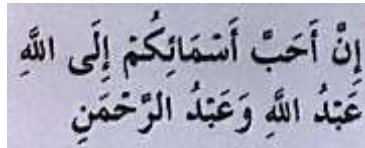 إِنَّ أَحَبَّ أَسْمَائِكُمْ إِلَى اللَّهِ
عَبْدُ اللَّهِ وَعَبْدُ الرَّحْمَنِ